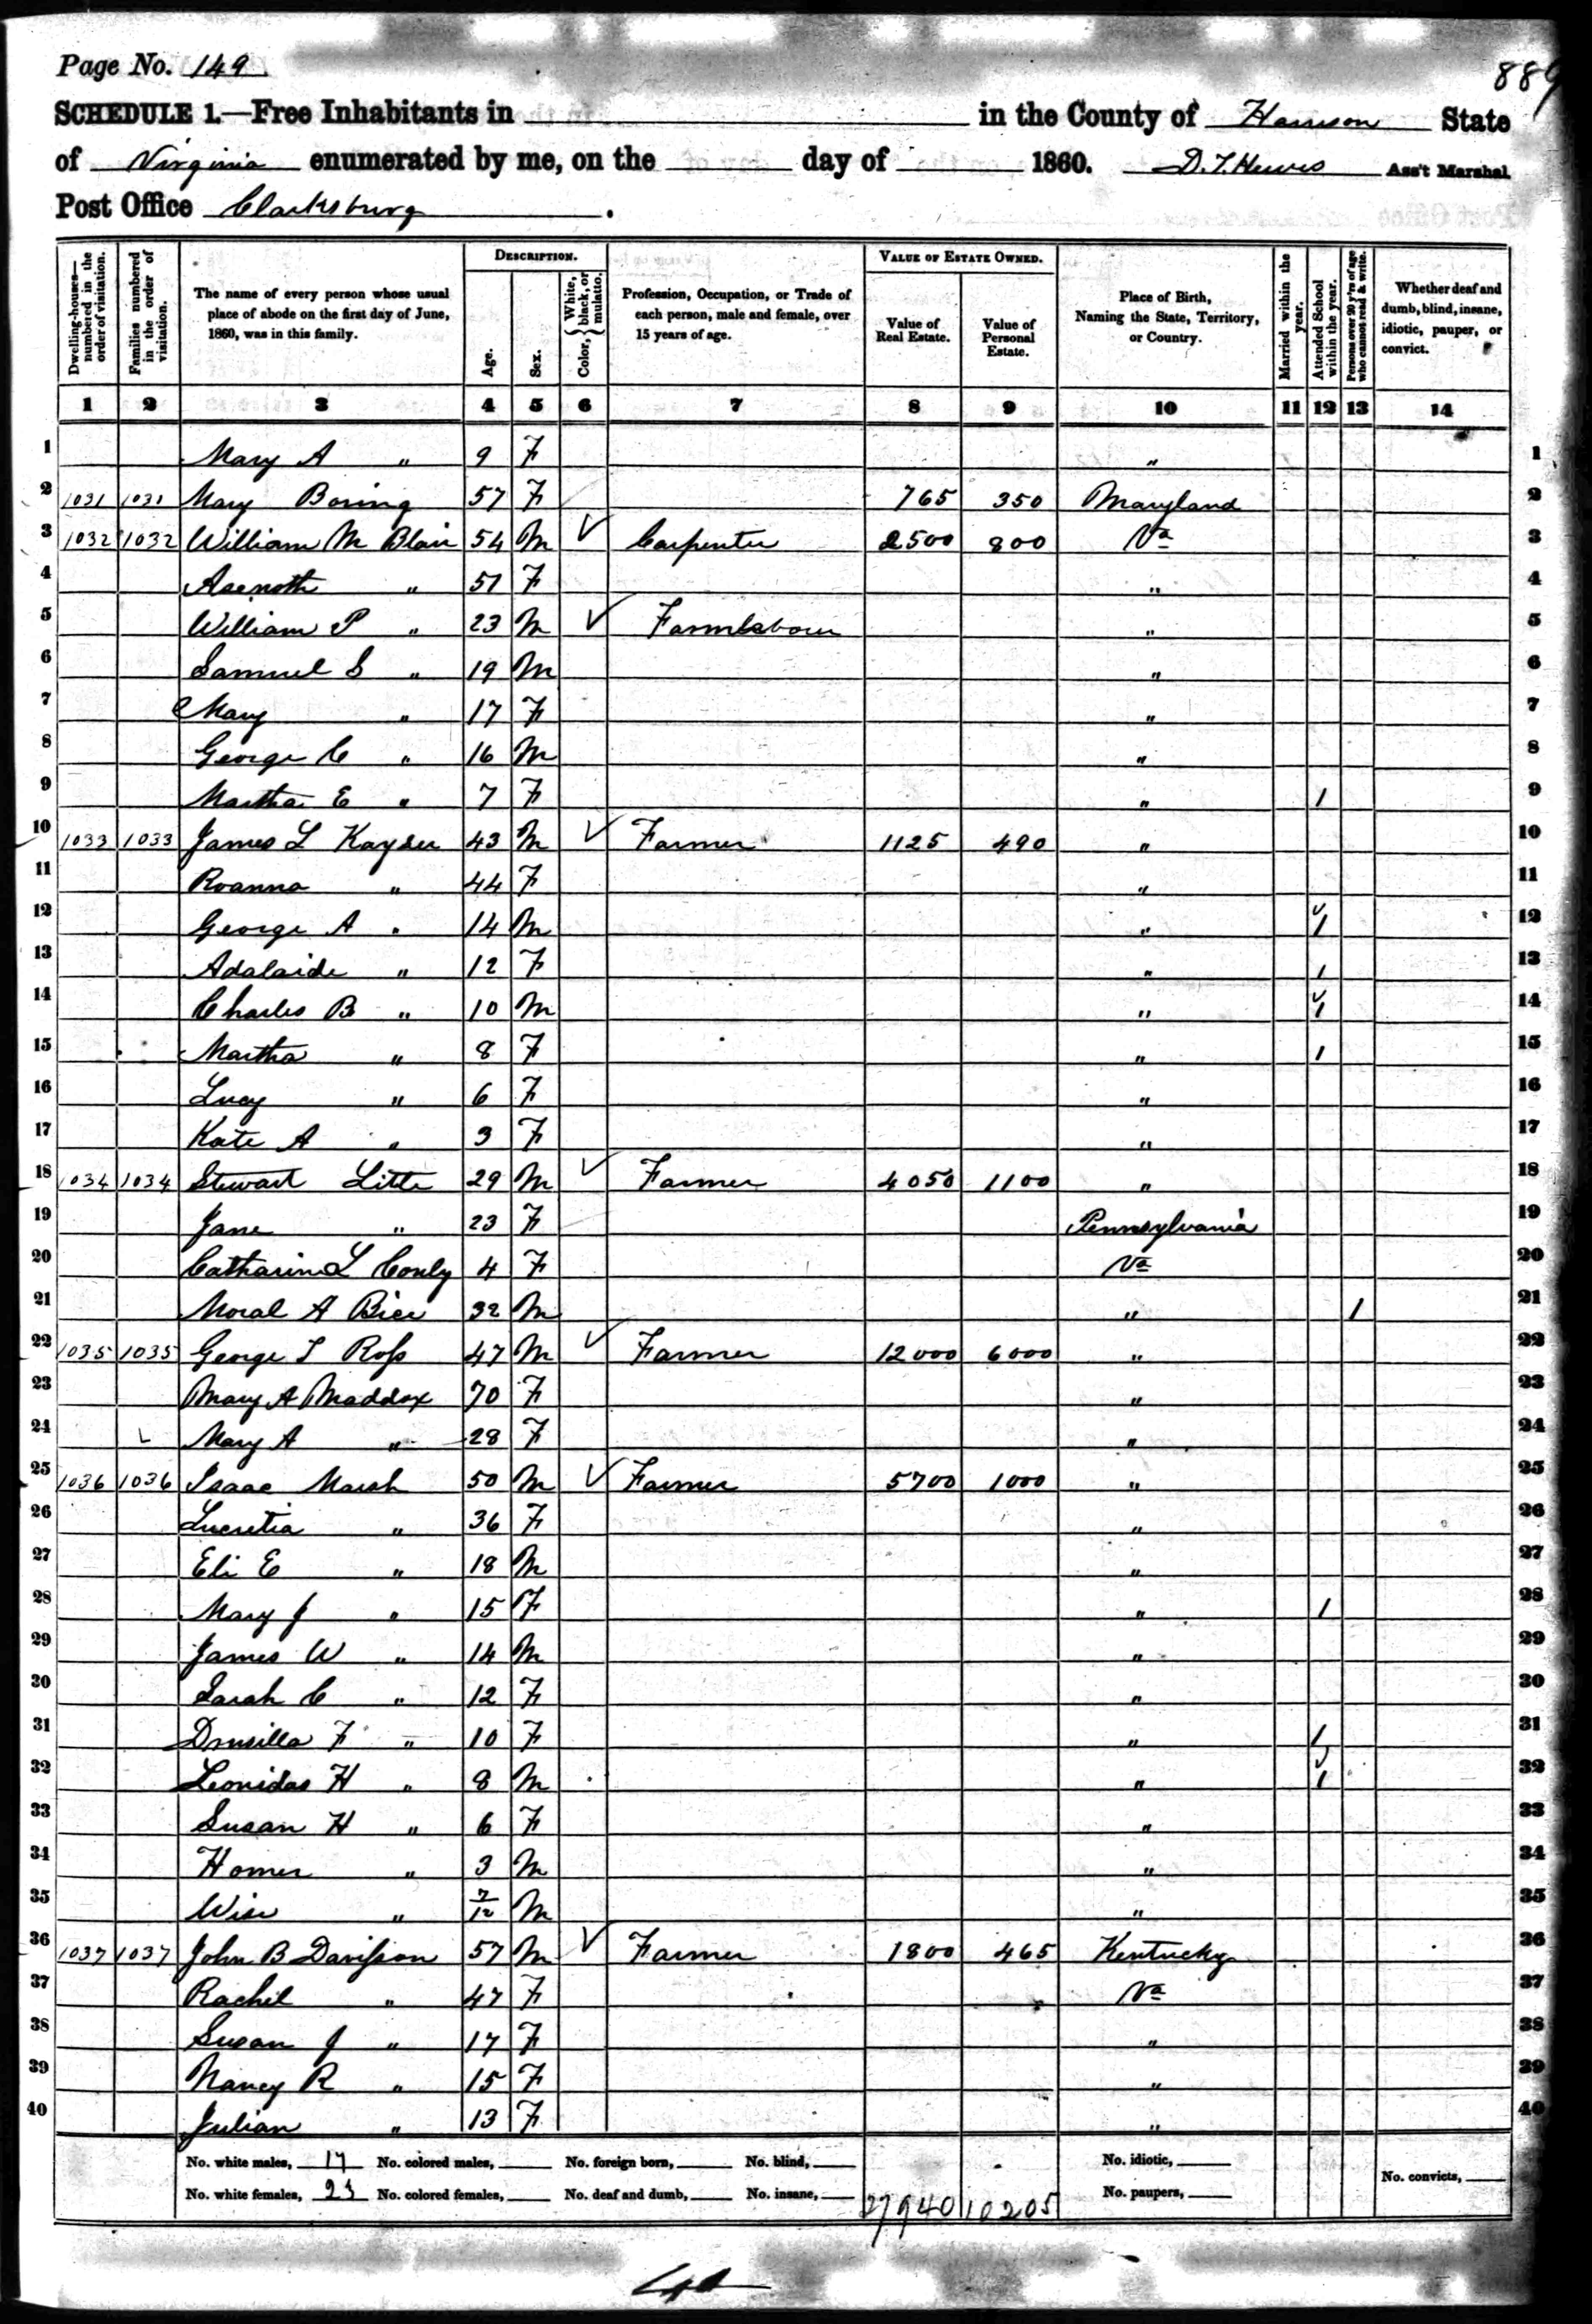 Page No. 149
889
SCHEDULE 1.—Free Inhabitants in in the County of Harrison State
of Virginia enumerated by me, on the day of 1860. D. T. Hewes Ass't Marshal.
Post Office Clarksburg.
Dwelling-houses—numbered in the order of visitation.
Families numbered in the order of visitation.
The name of every person whose usual place of abode on the first day of June, 1860, was in this family.
DESCRIPTION.
Age.
Sex.
Color, { White, black, or mulatto.
Profession, Occupation, or Trade of each person, male and female, over 15 years of age.
VALUE OF ESTATE OWNED.
Value of Real Estate.
Value of Personal Estate.
Place of Birth, Naming the State, Territory, or Country.
Married within the year.
Attended School within the year.
Persons over 20 y'rs of age who cannot read & write.
Whether deaf and dumb, blind, insane, idiotic, pauper, or convict.
1 2 3 4 5 6 7 8 9 10 11 12 13 14
1 Mary A " 9 F " 1
2 1031 1031 Mary Boring 57 F 765 350 Maryland 2
3 1032 1032 William M Blair 54 M ✓ Carpenter 2500 800 Va 3
4 Asenoth " 51 F " 4
5 William P " 23 M ✓ Farm labour " 5
6 Samuel S " 19 M " 6
7 Mary " 17 F " 7
8 George C " 16 M " 8
9 Martha E " 7 F " 1 9
10 1033 1033 James L Kayser 43 M ✓ Farmer 1125 490 " 10
11 Roanna " 44 F " 11
12 George A " 14 M " 1 12
13 Adalaide " 12 F " 1 13
14 Charles B " 10 M " 1 14
15 Martha " 8 F " 1 15
16 Lucy " 6 F " 16
17 Kate A " 3 F " 17
18 1034 1034 Stewart Little 29 M ✓ Farmer 4050 1100 " 18
19 Jane " 23 F Pennsylvania 19
20 Catharine L Conly 4 F Va 20
21 Moral A Rice 32 M " 1 21
22 1035 1035 George T Ross 47 M ✓ Farmer 12000 6000 " 22
23 Mary A Maddox 70 F " 23
24 Mary A " 28 F " 24
25 1036 1036 Isaac Marsh 50 M ✓ Farmer 5700 1000 " 25
26 Lucretia " 36 F " 26
27 Eli E " 18 M " 27
28 Mary J " 15 F " 1 28
29 James W " 14 M " 29
30 Sarah C " 12 F " 30
31 Drusilla F " 10 F " 1 31
32 Leonidas H " 8 M " 1 32
33 Susan H " 6 F " 33
34 Homer " 3 M " 34
35 Wise " 7/12 M " 35
36 1037 1037 John B Davisson 57 M ✓ Farmer 1800 465 Kentucky 36
37 Rachel " 47 F Va 37
38 Susan J " 17 F " 38
39 Nancy R " 15 F " 39
40 Julian " 13 F " 40
No. white males, 17 No. colored males, No. foreign born, No. blind, No. idiotic,
No. white females, 23 No. colored females, No. deaf and dumb, No. insane, 27940 10205 No. paupers, No. convicts,